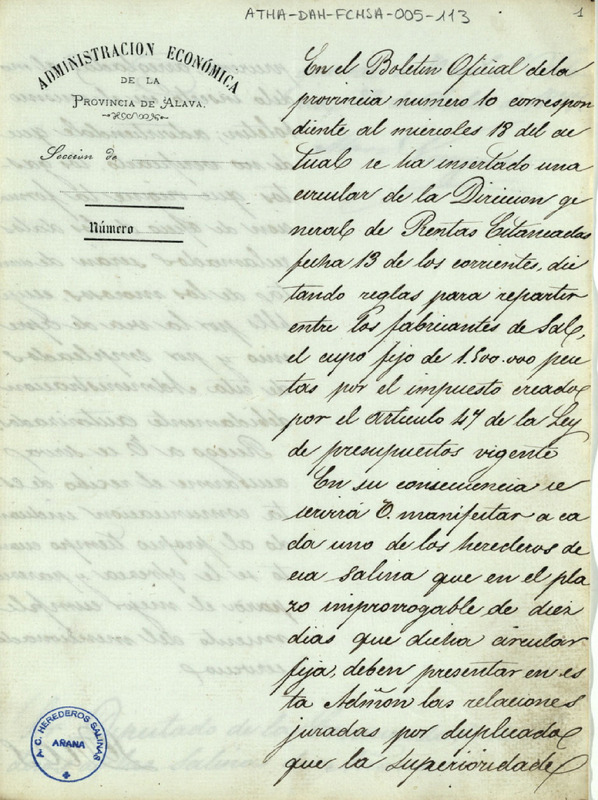 ATHA-DAH-FCMSA-005-113
1
ADMINISTRACION ECONÓMICA
DE LA
PROVINCIA DE ALAVA.
Seccion de
Número
En el Boletin Oficial de la
provincia numero 10 correspon
diente al miercoles 13 del ac
tual se ha insertado una
circular de la Direccion ge
neral de Rentas Estancadas
fecha 13 de los corrientes, dic
tando reglas para repartir
entre los fabricantes de Sal,
el cupo fijo de 1.500.000 pese
tas por el impuesto creado
por el articulo 47 de la Ley
de presupuestos vigente
En su consecuencia se
servirá V. manifestar a ca
da uno de los herederos de
esa Salina que en el pla
zo improrrogable de diez
dias que dicha circular
fija, deben presentar en es
ta Admñon las relaciones
juradas por duplicado
que la Superioridad
A. C. HEREDEROS SALINAS
AÑANA